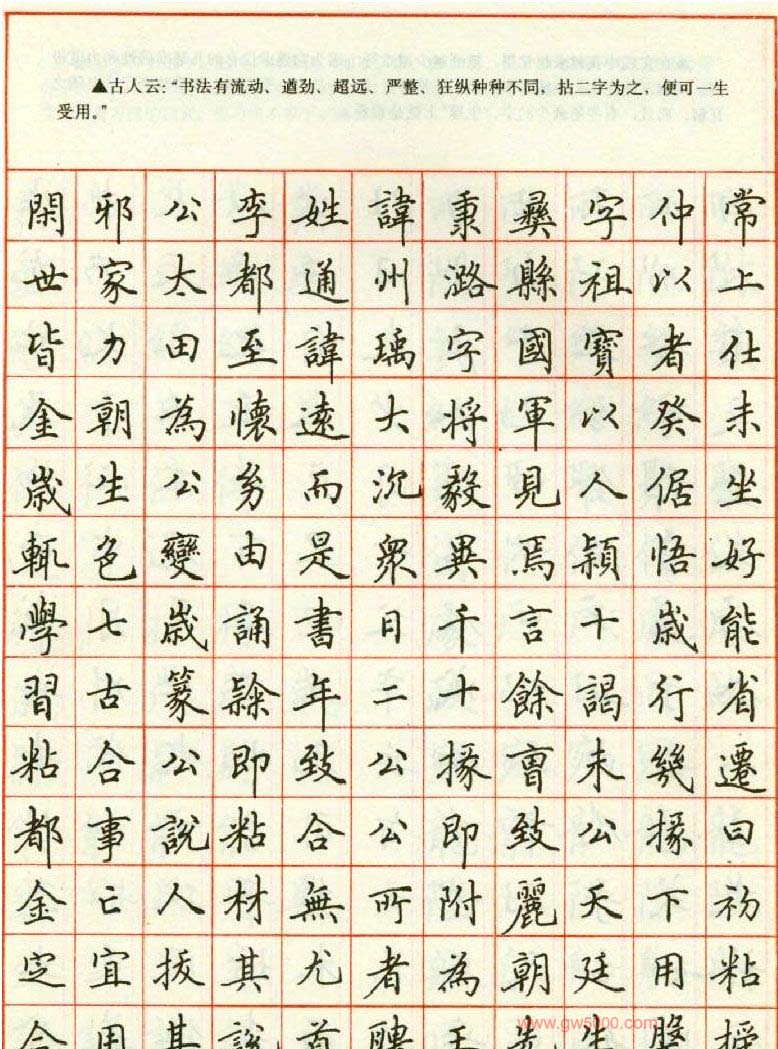 ▲古人云:“书法有流动、遒劲、超远、严整、狂纵种种不同,拈二字为之,便可一生
受用。”
閑邪公李姓諱秉彜字仲常
世家太都通州潞縣祖以上
皆力田至諱瑀字國寶者仕
金朝為懷遠大将軍以癸未
歲生公幼而沉毅見人倨坐
輒色變由是衆異焉穎悟好
學七歲誦書日千言十歲能
習古篆隸年二十餘謁行省
粘合公即致公掾曹未幾遷
都事說粘合公即致公掾曰
金亡人材無所附麗天下初
定宜拔其尤者為朝廷用粘
合用其說首聘王先生授
www.gw5000.com